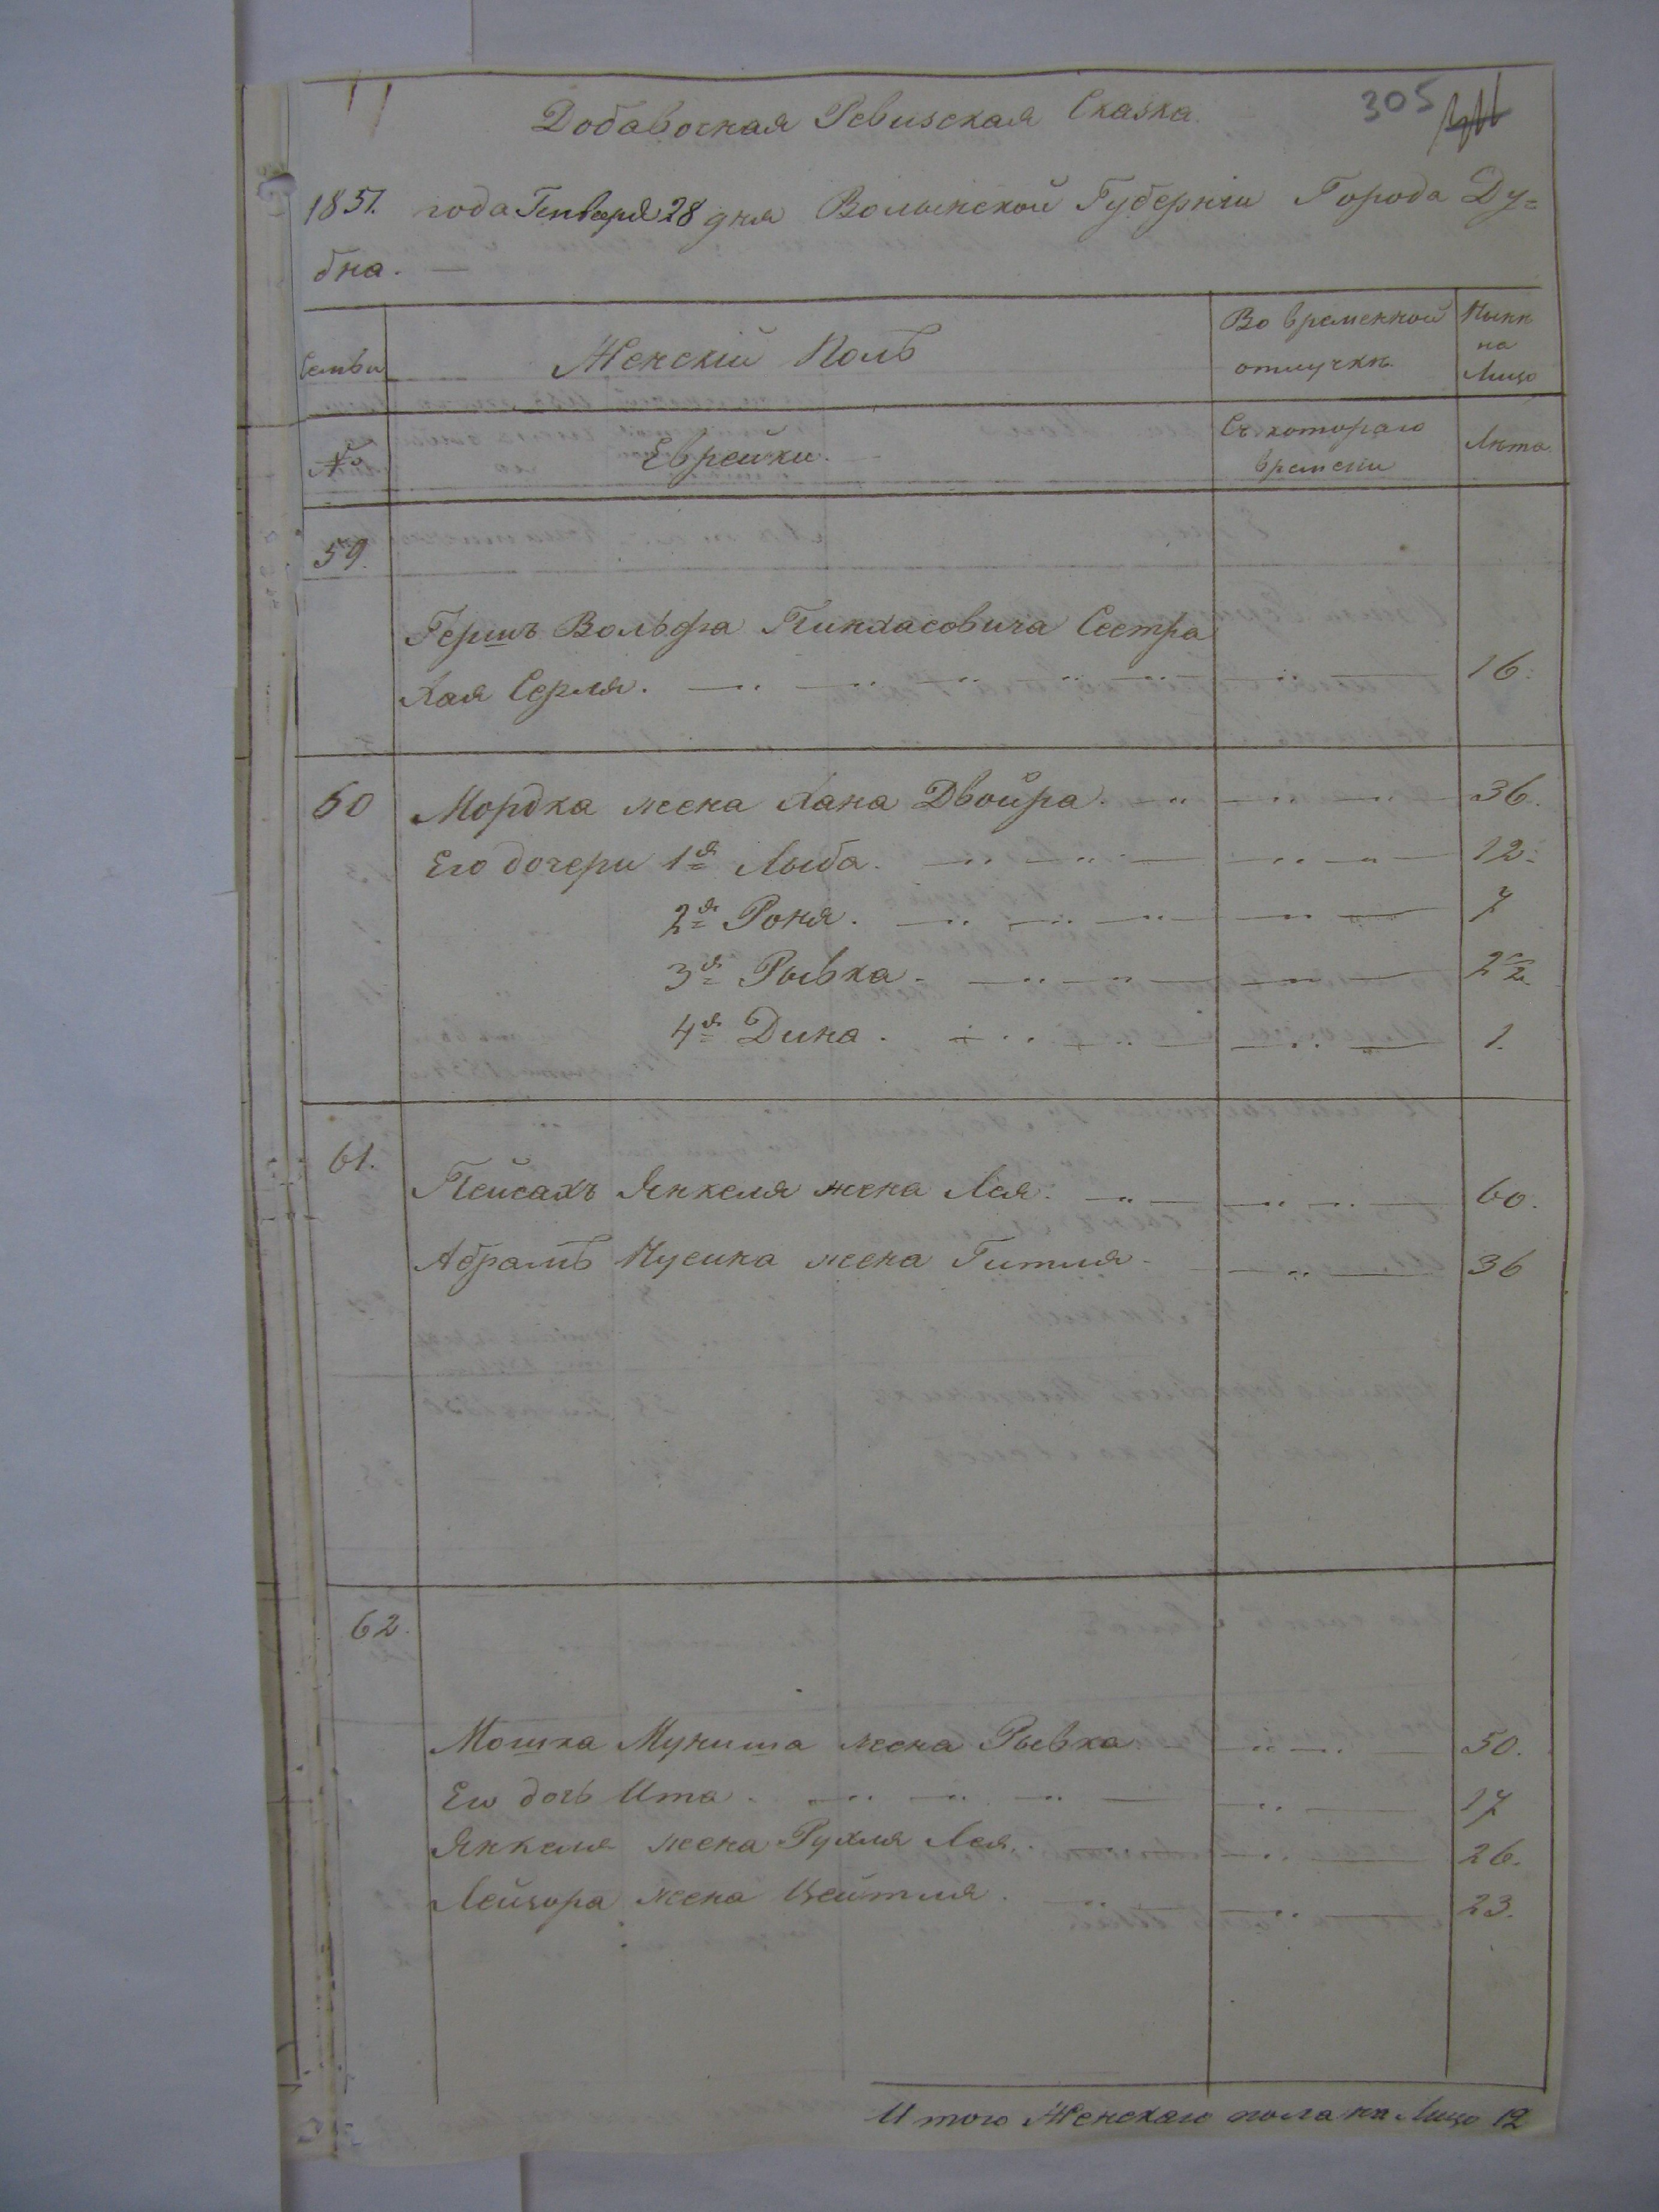 305
Добавочная Ревизская Сказка.
1851. года Генваря 28 дня Волынской Губерніи Города Ду=
бна. —
Семьи
Женскій Полъ
Во временной
отлучкѣ.
Нынѣ
на
Лицо
№
Еврейки.
Съ котораго
времени
Лѣта
59.
Гершъ Вольфа Пинхасовича Сестра
Хая Серля. 16.
60 Мордка жена Хана Двойра. 36.
Его дочери 1я Лыба. 12.
2я Роня. 7
3я Рывка. 2 1/2
4я Дина. 1.
61.
Пейсахъ Янкеля жена Лея. 60.
Абрамъ Нусина жена Гитля. 36
62.
Мошка Муниша жена Рывка 50.
Его дочь Ита. 17
Янкеля жена Рухля Лея. 26.
Лейзора жена Цейтля. 23.
Итого Женскаго пола на Лицо 12